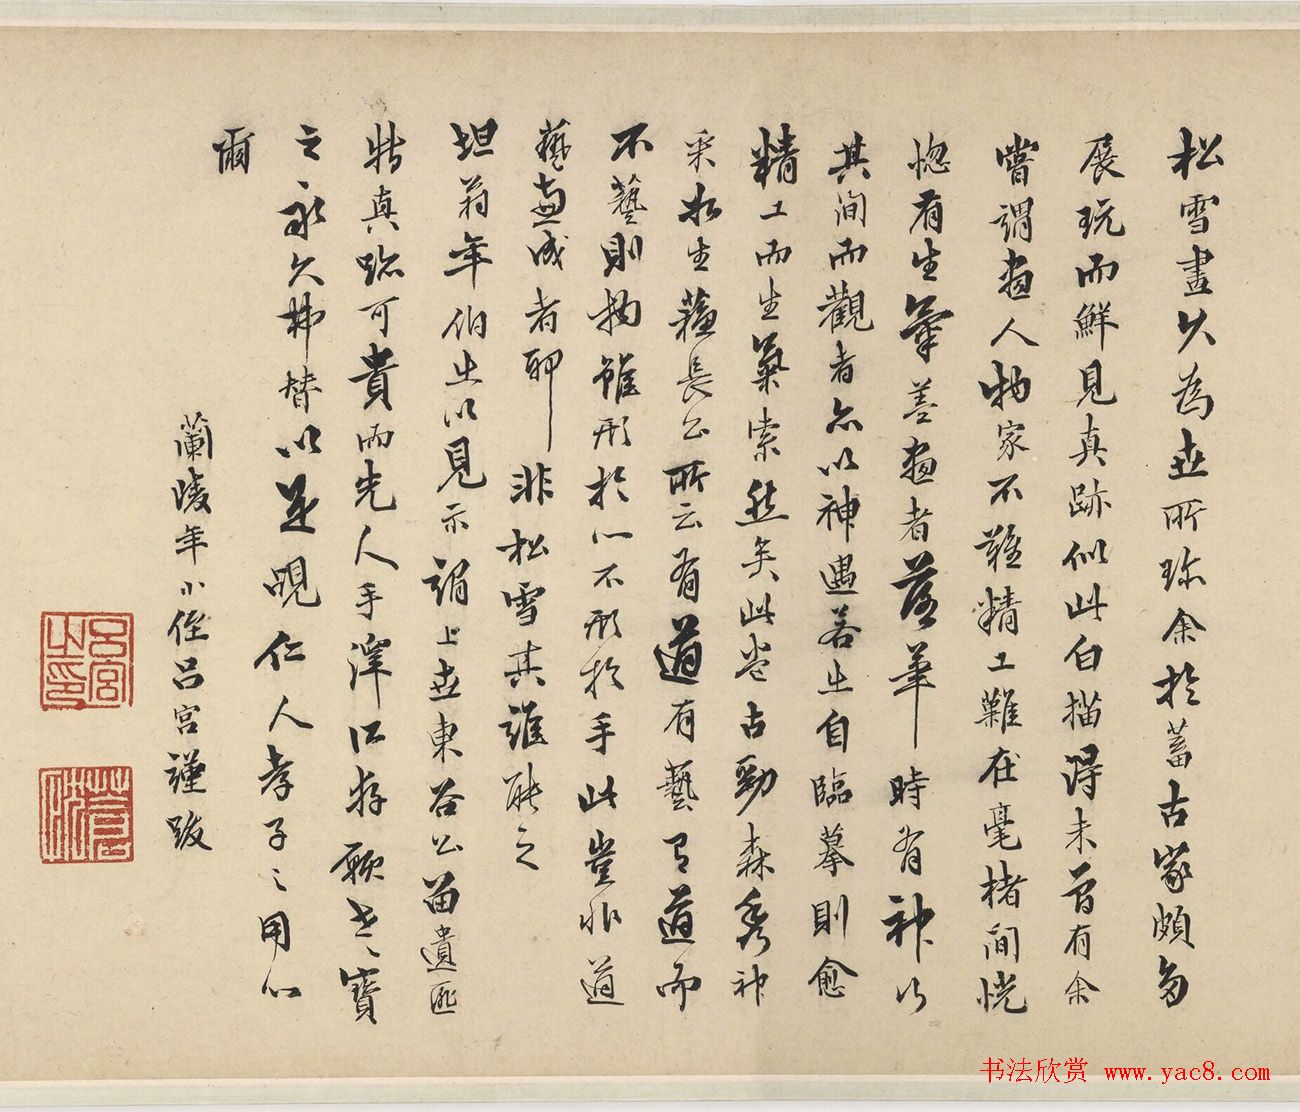 松雪畫久為世所珍余於蓄古家頗多
展玩而鮮見真跡似此白描得未曾有余
嘗謂畫人物家不難精工難在毫楮間恍
惚有生氣善畫者落筆時有神行
其間而觀者亦以神遇若止自臨摹則愈
精工而生氣索然矣此卷古勁森秀神
采如生蘇長公所云有道有藝有道而
不藝則物雖形於心不形於手此豈非道
藝兼成者耶非松雪其誰能之
坦翁年伯出以見示謂上世東谷公留遺匪
特真跡可貴而先人手澤口存願世世寶
之永久弗替以是覘仁人孝子之用心
爾
蘭陵年小侄呂宮謹跋
呂宮之印
书法欣赏 www.yac8.com